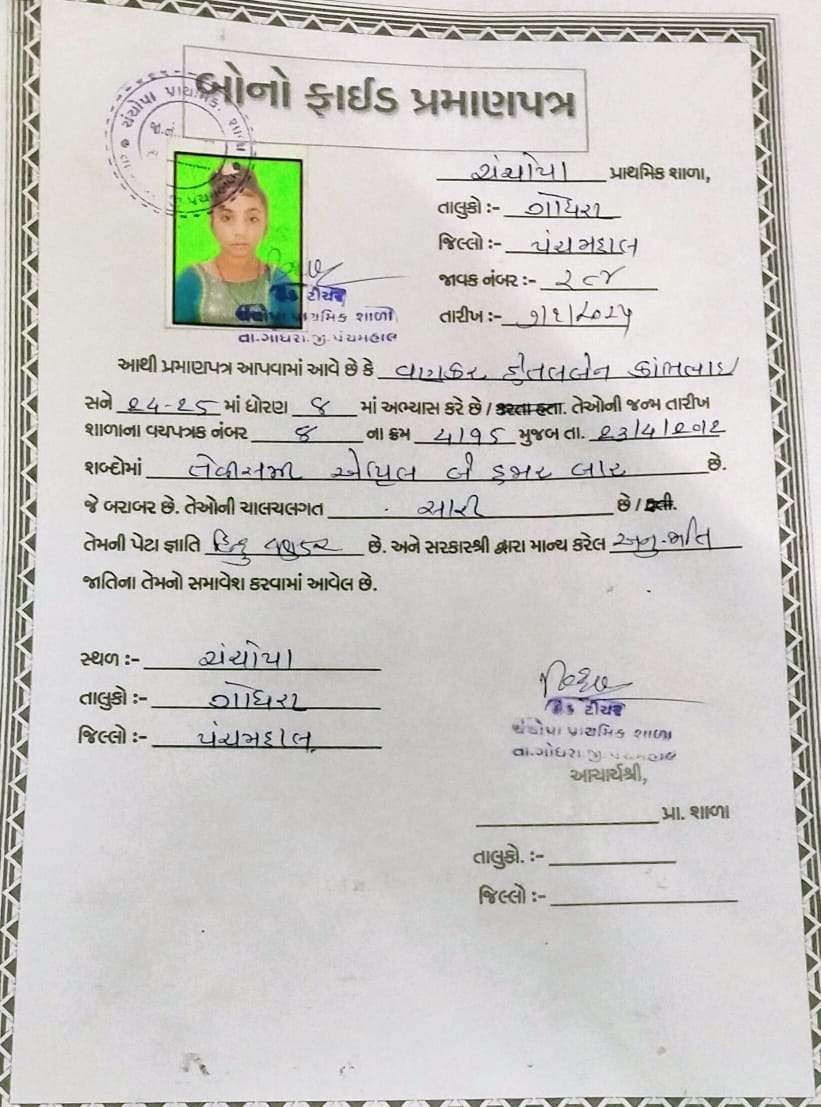 બોનો ફાઈડ પ્રમાણપત્ર
ચંચોપા પ્રાથમિક શાળા,
તાલુકો :- ગોધરા
જિલ્લો :- પંચમહાલ
જાવક નંબર :-
તારીખ :-
હેડ ટીચર
ચંચોપા પ્રાથમિક શાળા
તા.ગોધરા.જી.પંચમહાલ
આથી પ્રમાણપત્ર આપવામાં આવે છે કે વણકર
સને ૨૪-૨૫ માં ધોરણ ૪ માં અભ્યાસ કરે છે / કરતા હતા. તેઓની જન્મ તારીખ
શાળાના વયપત્રક નંબર ૪ ના ક્રમ મુજબ તા. ૨૩/૪/૨૦૧૨
શબ્દોમાં તેવીસમી એપ્રિલ બે હજાર બાર છે.
જે બરાબર છે. તેઓની ચાલચલગત સારી છે / હતી.
તેમની પેટા જ્ઞાતિ હિન્દુ વણકર છે. અને સરકારશ્રી દ્વારા માન્ય કરેલ અનુ.જાતિ
જાતિના તેમનો સમાવેશ કરવામાં આવેલ છે.
સ્થળ :- ચંચોપા
તાલુકો :- ગોધરા
જિલ્લો :- પંચમહાલ
હેડ ટીચર
ચંચોપા પ્રાથમિક શાળા
તા.ગોધરા.જી.પંચમહાલ
આચાર્યશ્રી,
પ્રા. શાળા
તાલુકો. :-
જિલ્લો :-